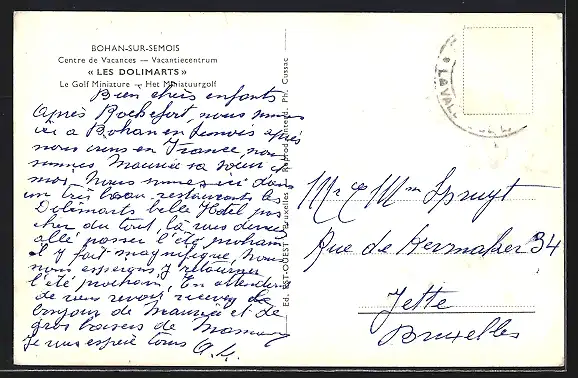 BOHAN-SUR-SEMOIS
Centre de Vacances — Vacantiecentrum
« LES DOLIMARTS »
Le Golf Miniature — Het Miniatuurgolf
Bien chers enfants
après Rochefort, nous
ici a Bohan en Semois après
nous en France, nous
Maurice sa soeur et
moi, nous ici dans
un très beau restaurants les
Dolimarts belle Hotel pas
cher du tout, là vous devez
allé passer l'été prochain
il y fait magnifique, nous
nous espérons y retourner
l'été prochain, En attendant
de vous revoir recevez le
bonjour de Maurice et de
gros baisers de
Je vous espère tous
Ed. EST-OUEST Bruxelles Ph. Cussac
LAVAL
Mr & Mme Spruyt
Rue de Kermaker 34
Jette
Bruxelles